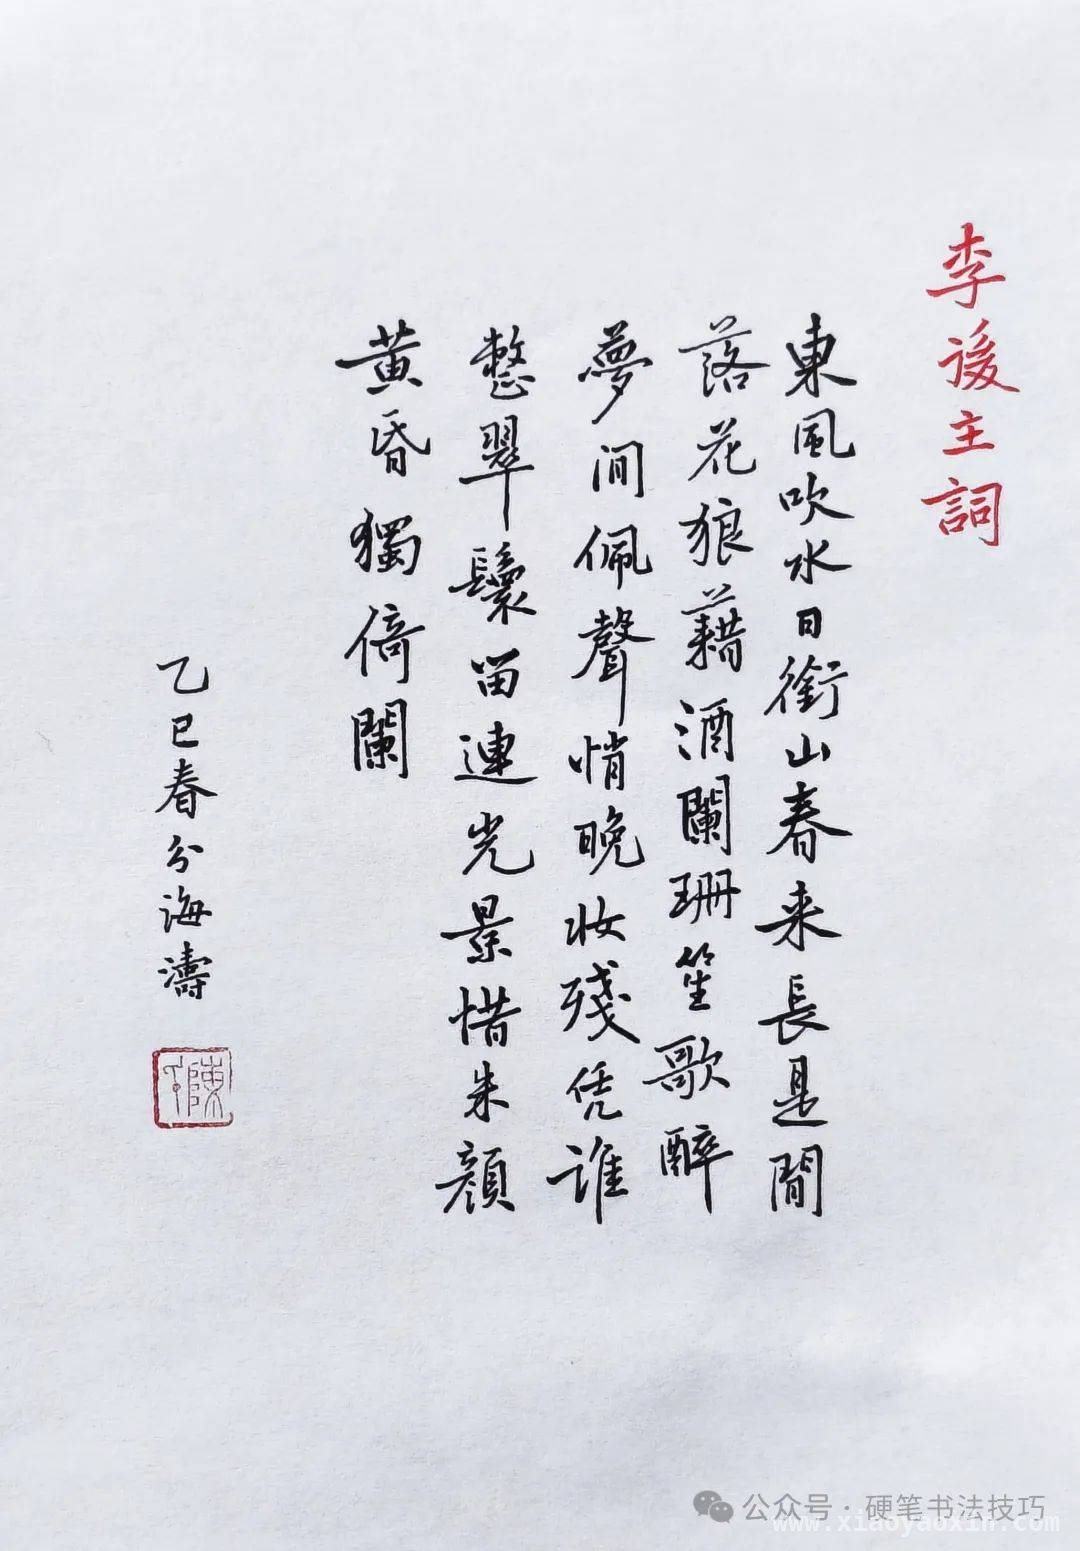 李後主詞
東風吹水日銜山春来長是閒
落花狼藉酒闌珊笙歌醉
夢間佩聲悄晚妆殘凭誰
整翠鬟留連光景惜朱顔
黄昏獨倚闌
乙巳春分海濤
陳
公众号·硬笔书法技巧
www.xiaoyaoxin.com